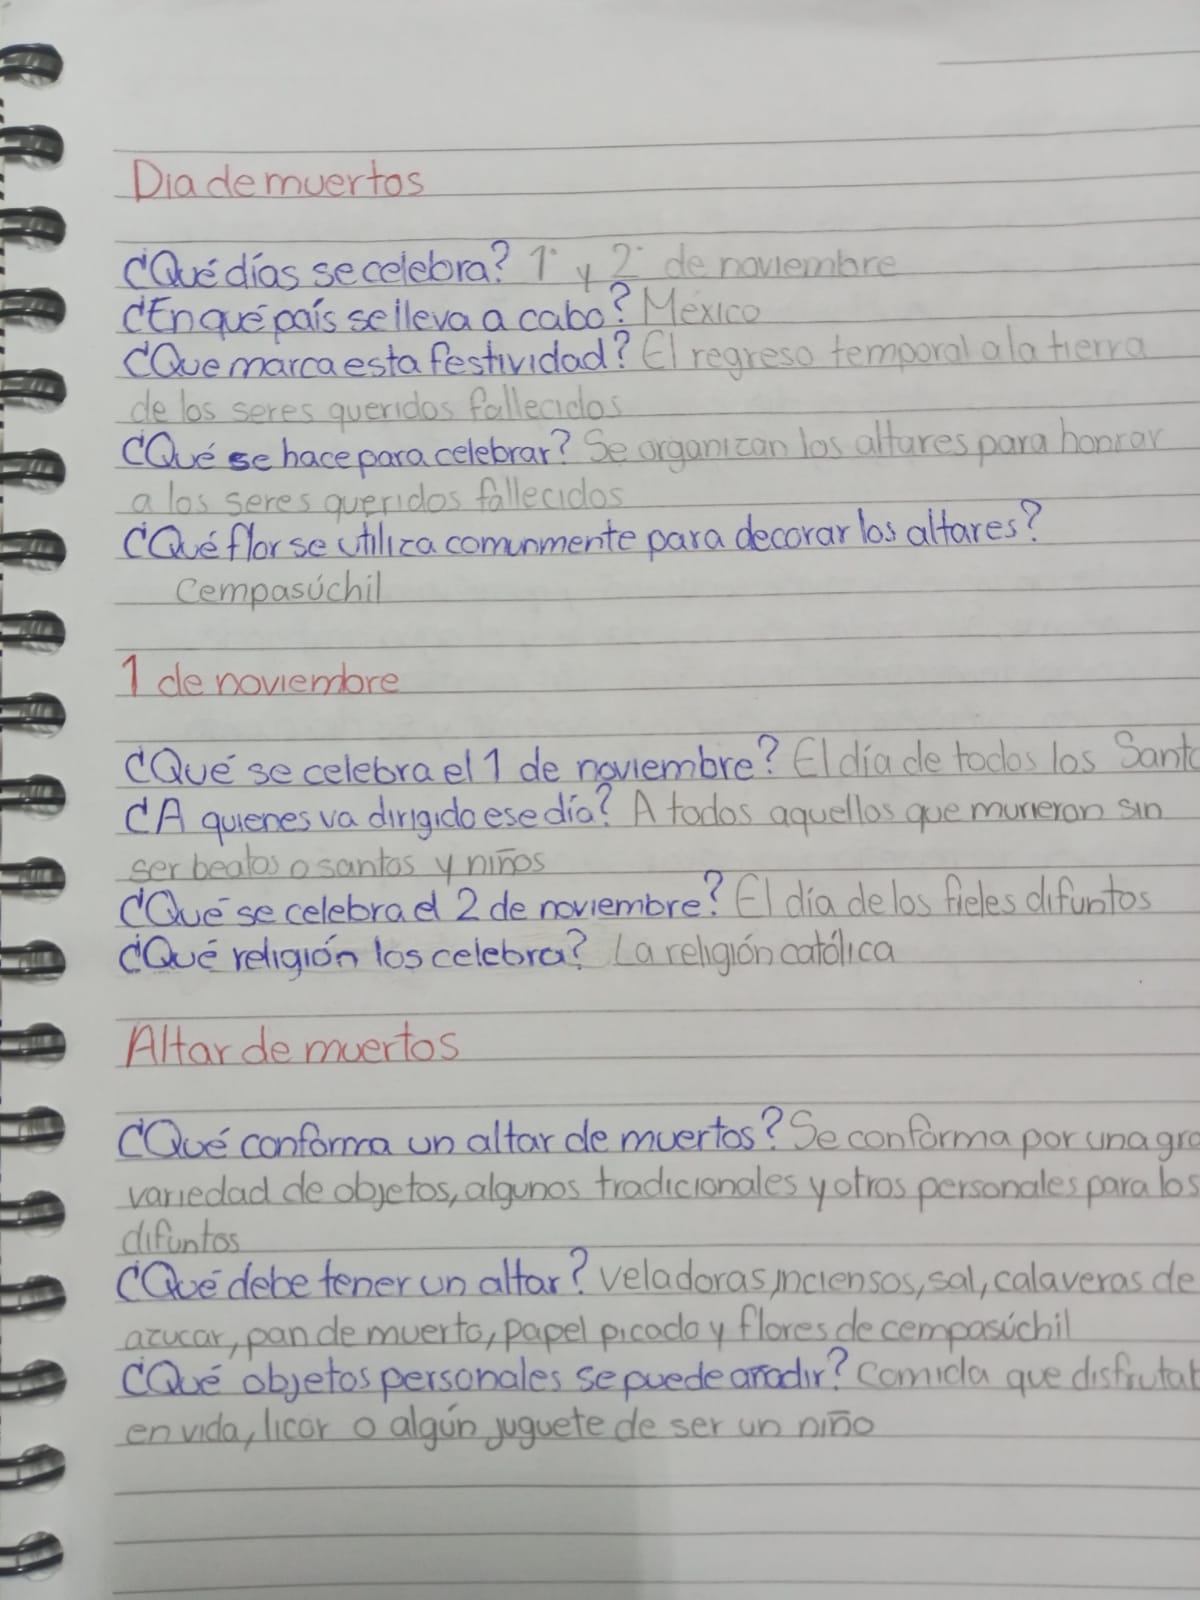 Dia de muertos
¿Qué días se celebra? 1° y 2° de noviembre
¿En qué país se lleva a cabo? México
¿Que marca esta festividad? El regreso temporal a la tierra
de los seres queridos fallecidos
¿Qué se hace para celebrar? Se organizan los altares para honrar
a los seres queridos fallecidos
¿Qué flor se utiliza comunmente para decorar los altares?
Cempasúchil
1 de noviembre
¿Qué se celebra el 1 de noviembre? El día de todos los Santo
¿A quienes va dirigido ese día? A todos aquellos que murieron sin
ser beatos o santos y niños
¿Qué se celebra el 2 de noviembre? El día de los fieles difuntos
¿Qué religión los celebra? La religión católica
Altar de muertos
¿Qué conforma un altar de muertos? Se conforma por una gra
variedad de objetos, algunos tradicionales y otros personales para los
difuntos
¿Qué debe tener un altar? Veladoras, inciensos, sal, calaveras de
azucar, pan de muerto, papel picado y flores de cempasúchil
¿Qué objetos personales se puede añadir? Comida que disfrutab
en vida, licor o algún juguete de ser un niño